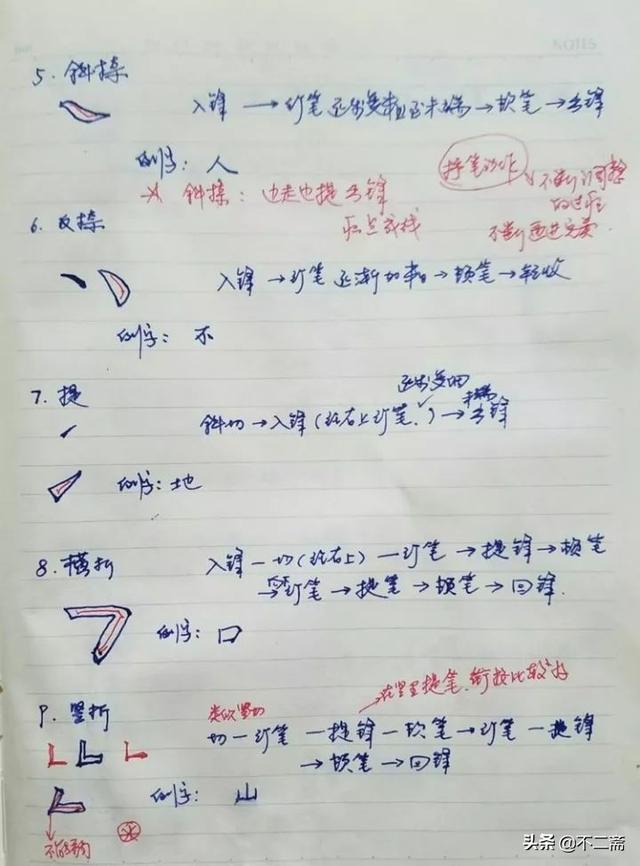 NOTES
5. 斜捺
入锋 → 行笔 逐渐变粗至末端 → 顿笔 → 出锋
例字: 人
斜捺: 边走边提出锋
捺笔动作
不断调整
的过程
不断改进完美.
6. 反捺
入锋 → 行笔 逐渐加重 → 顿笔 → 轻收
例字: 不
7. 提
逐渐变细
末端
斜切 → 入锋 (往右上行笔.) → 出锋
例字: 地
8. 横折
入锋 一切(往右上) 一行笔 → 提锋 → 顿笔
→ 行笔 → 提笔 → 顿笔 → 回锋.
例字: 口
在竖至提笔. 衔接比较好
9. 竖折
类似竖切
切一行笔 一提锋 一顿笔 → 行笔 一提锋
→ 顿笔 → 回锋
例字: 山
头条 @不二斋